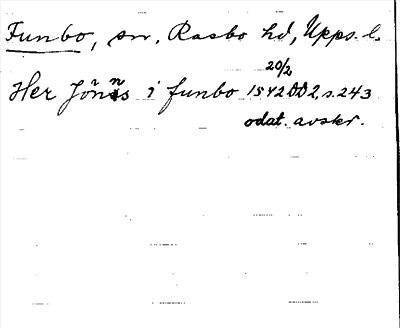 Funbo, sn, Rasbo hd, Upps. l.
20/2
Her Jöns i funbo 1542 DD2, s. 243
odat. avskr.